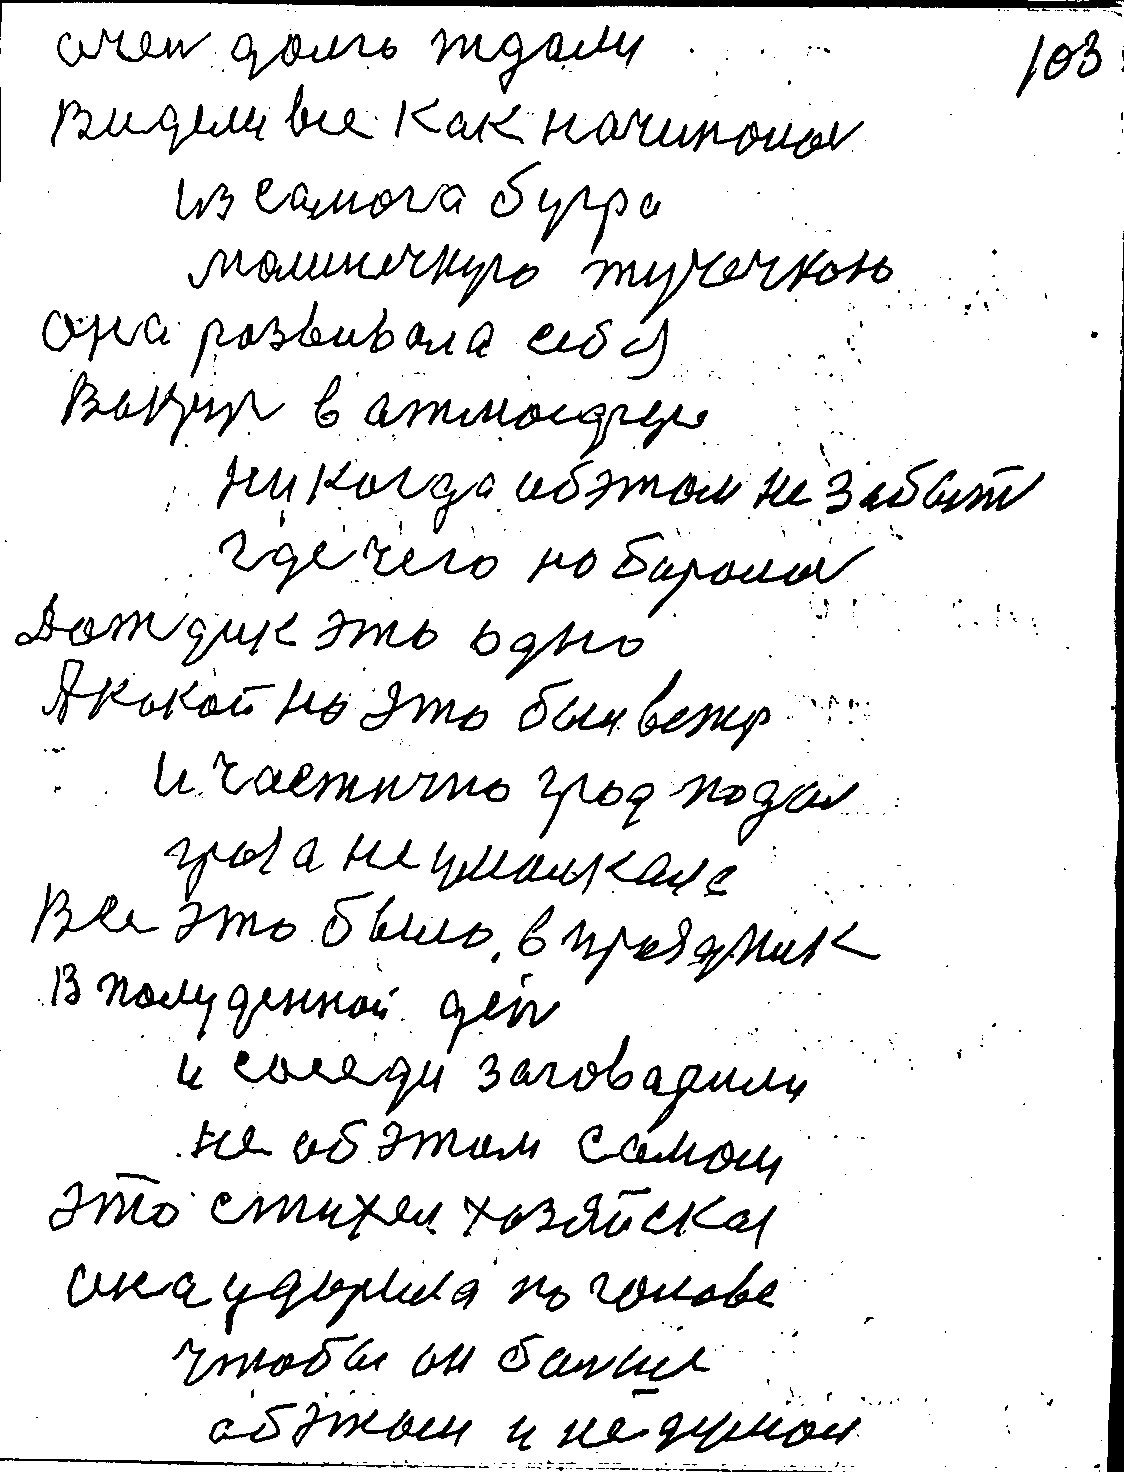 103
очен долго ждали
Видели все как начиналас
из самога бугра
малинечкую тучечкою
она развивала себя
Вакруг в атмосфере
никогда обэтом не забыт
где чего набиралас
Дождик это одно
А какой но это был ветр
и частично град падал
гроза не умалкала
Все это было, в праздник
В полуденной ден
и соседи заговарили
не обэтом самом
это стихея хозяйская
она ударила по голове
чтобы он болше
обэтом и не думал